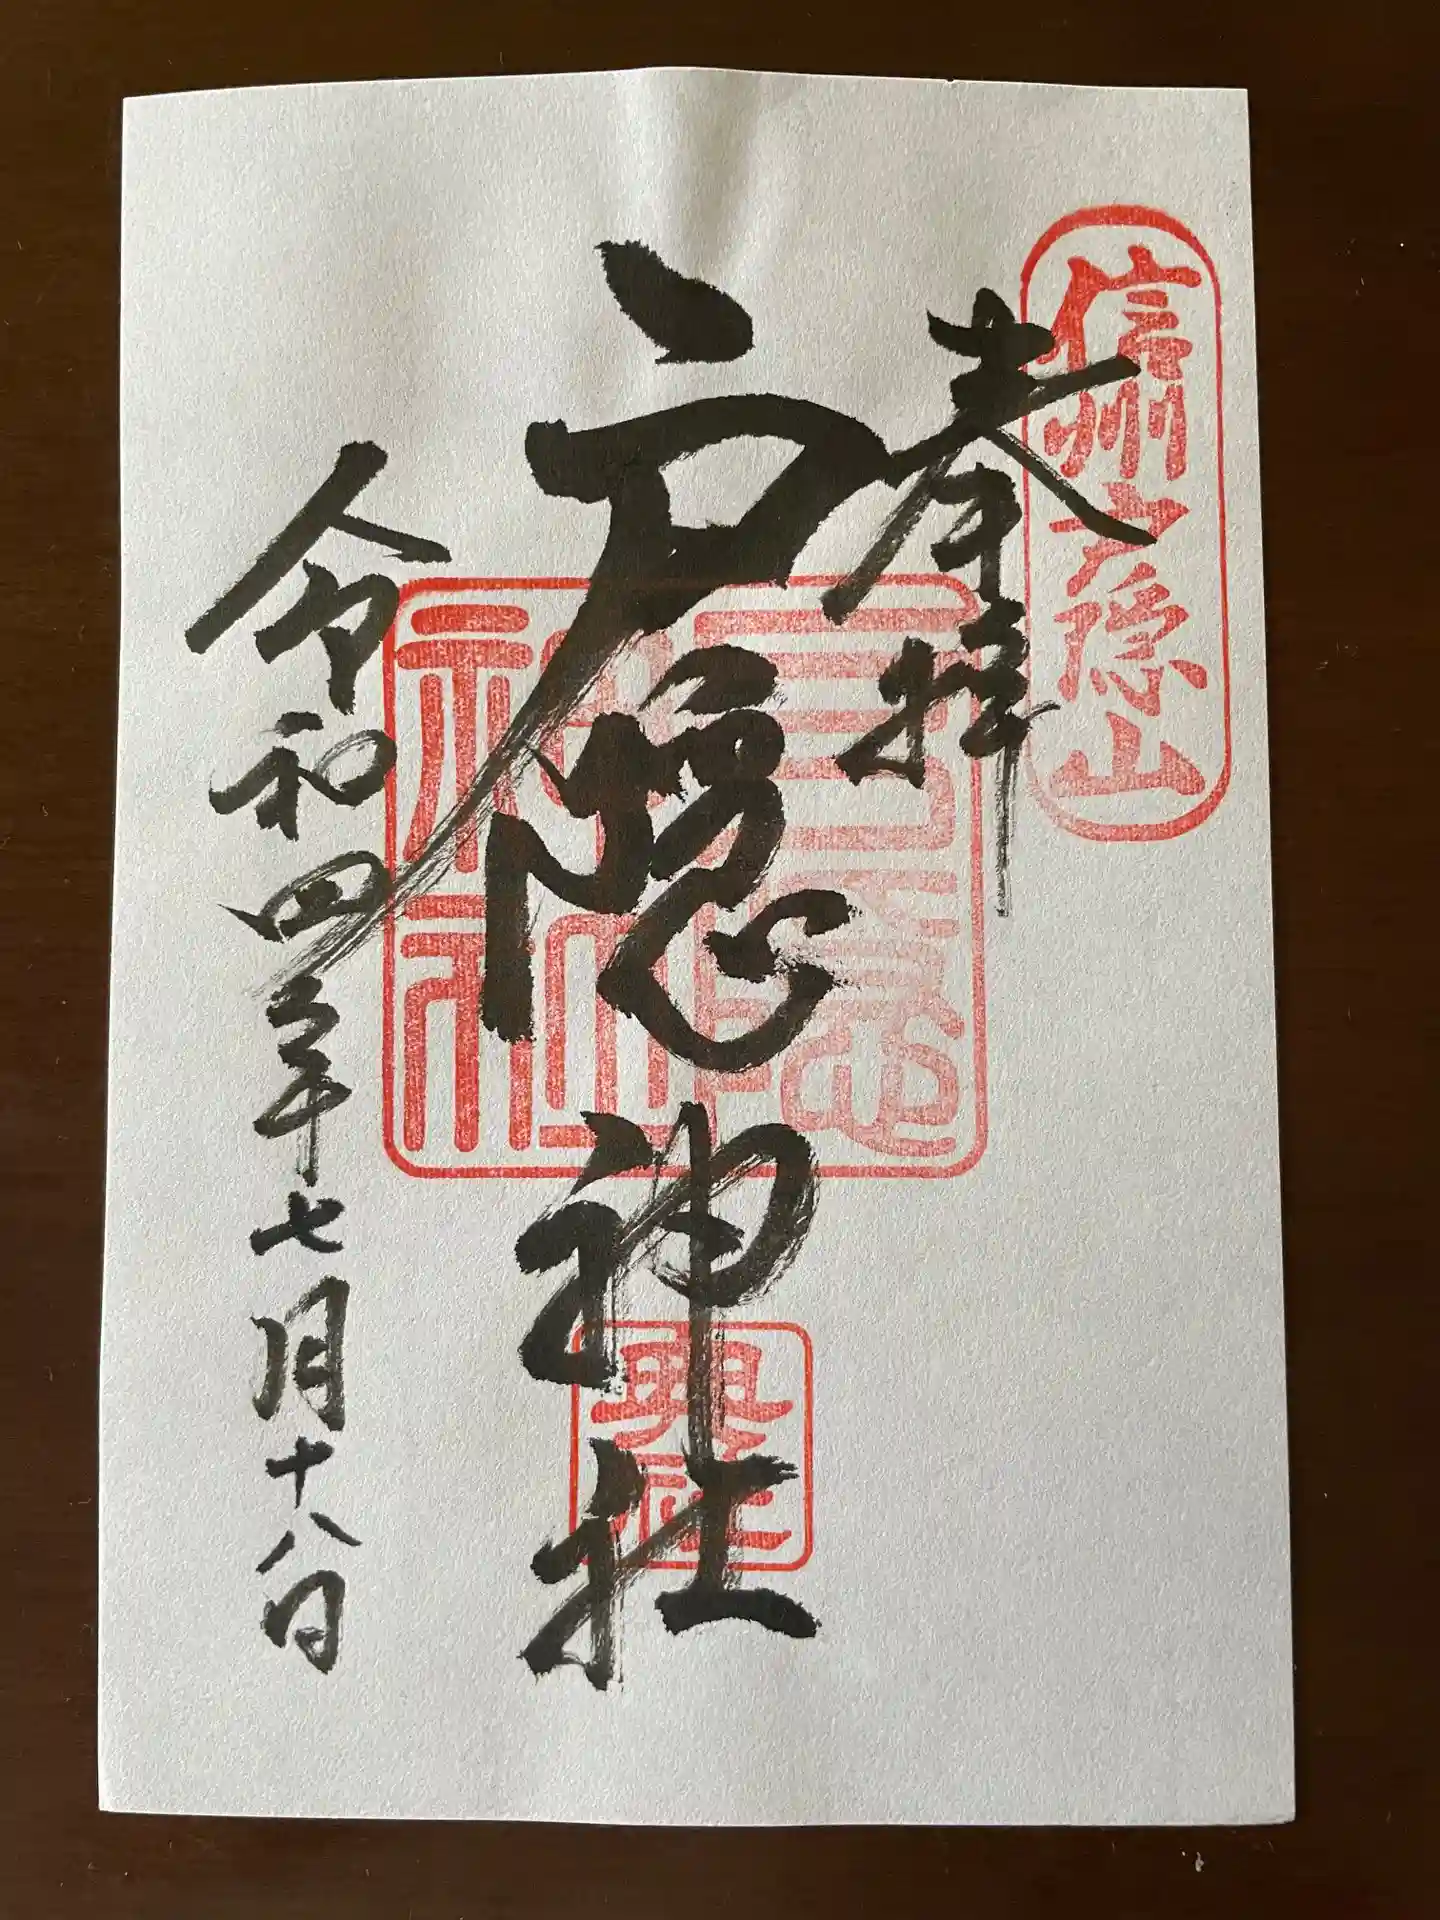 信州戸隠山
奉拝
戸隠神社
奥社
令和四年七月十八日